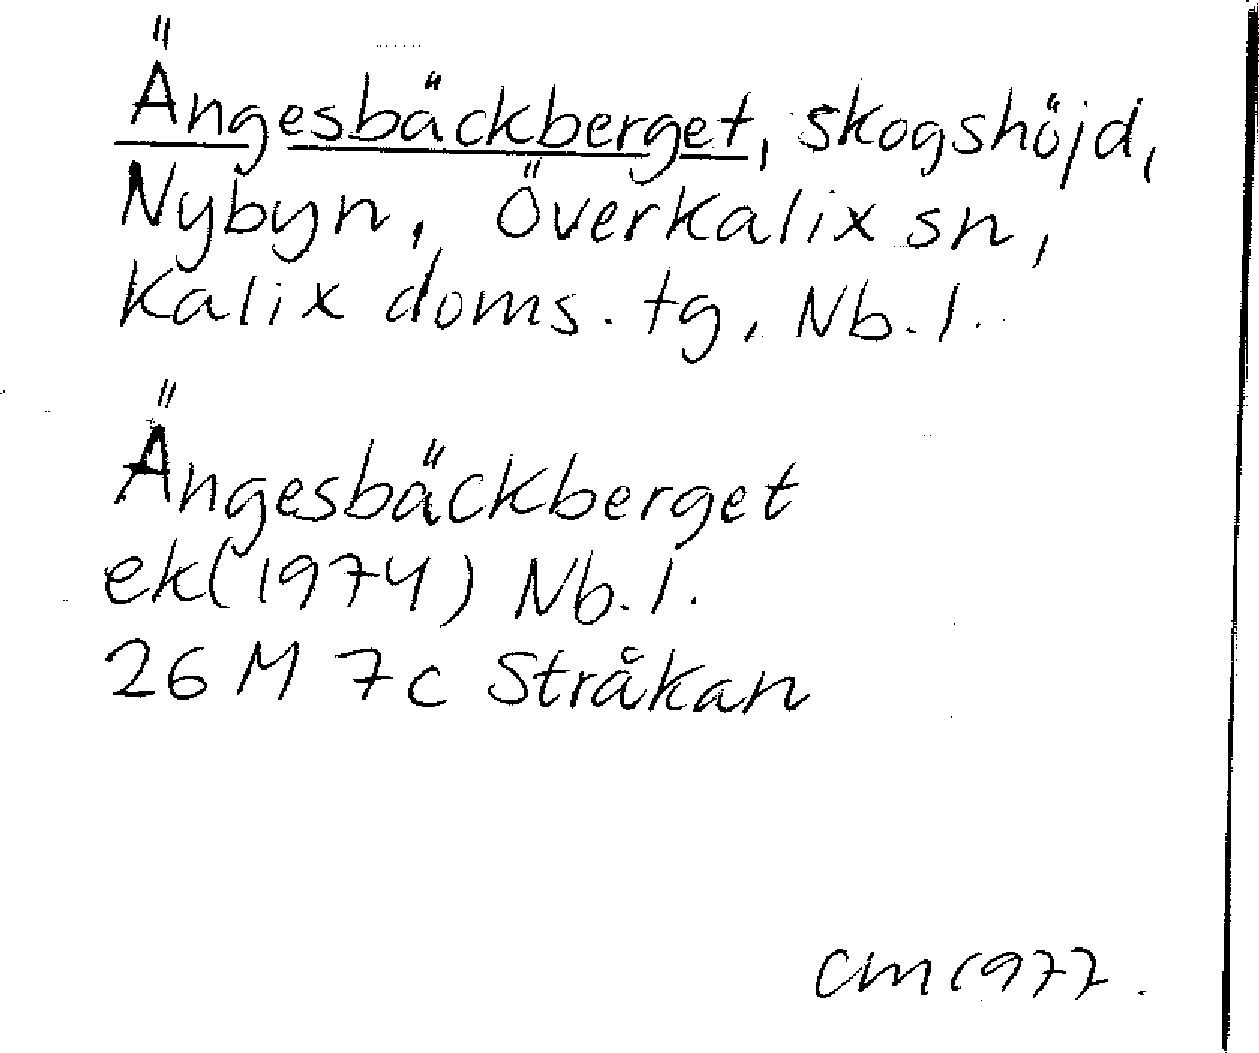 Ängesbäckberget, skogshöjd,
Nybyn, Överkalix sn,
Kalix doms. tg, Nb. l.
Ängesbäckberget
ek (1974) Nb. l.
26 M 7c Stråkan
CM 1977.